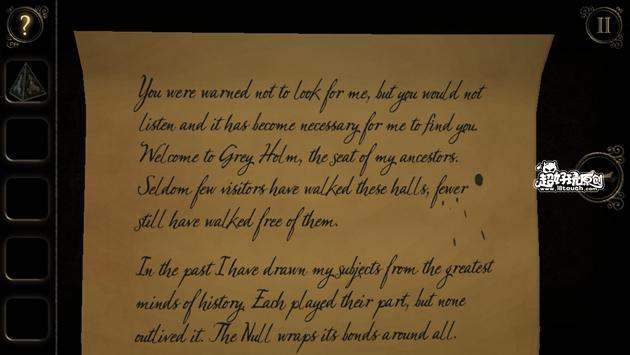 ?
You were warned not to look for me, but you would not
listen and it has become necessary for me to find you.
Welcome to Grey Holm, the seat of my ancestors.
Seldom few visitors have walked these halls, fewer
still have walked free of them.
In the past I have drawn my subjects from the greatest
minds of history. Each played their part, but none
outlived it. The Null wraps its bonds around all.
超好玩原创
www.18touch.com